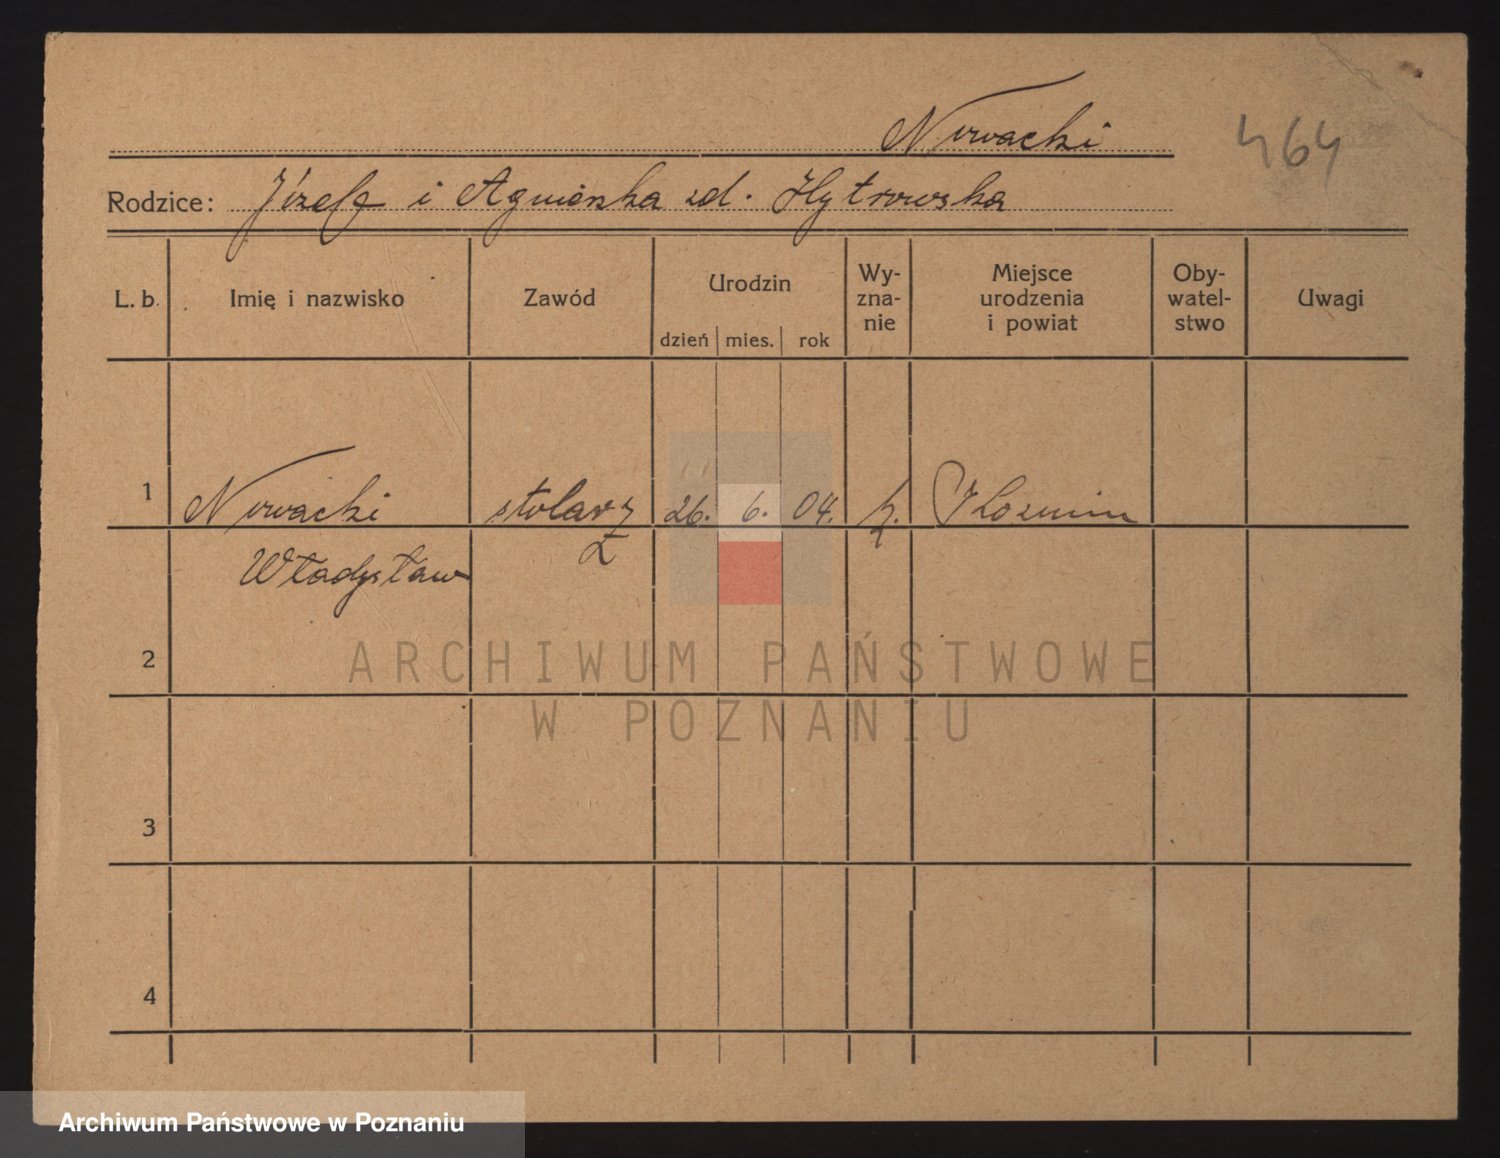 Nowacki
464
Rodzice: Józef i Agnieszka zd. Hytrowska
L. b. Imię i nazwisko Zawód Urodzin dzień mies. rok Wy-zna-nie Miejsce urodzenia i powiat Oby-watel-stwo Uwagi
1 Nowacki stolarz 26. 6. 04. Koźmin
Władysław
2
ARCHIWUM PAŃSTWOWE
W POZNANIU
3
4
Archiwum Państwowe w Poznaniu